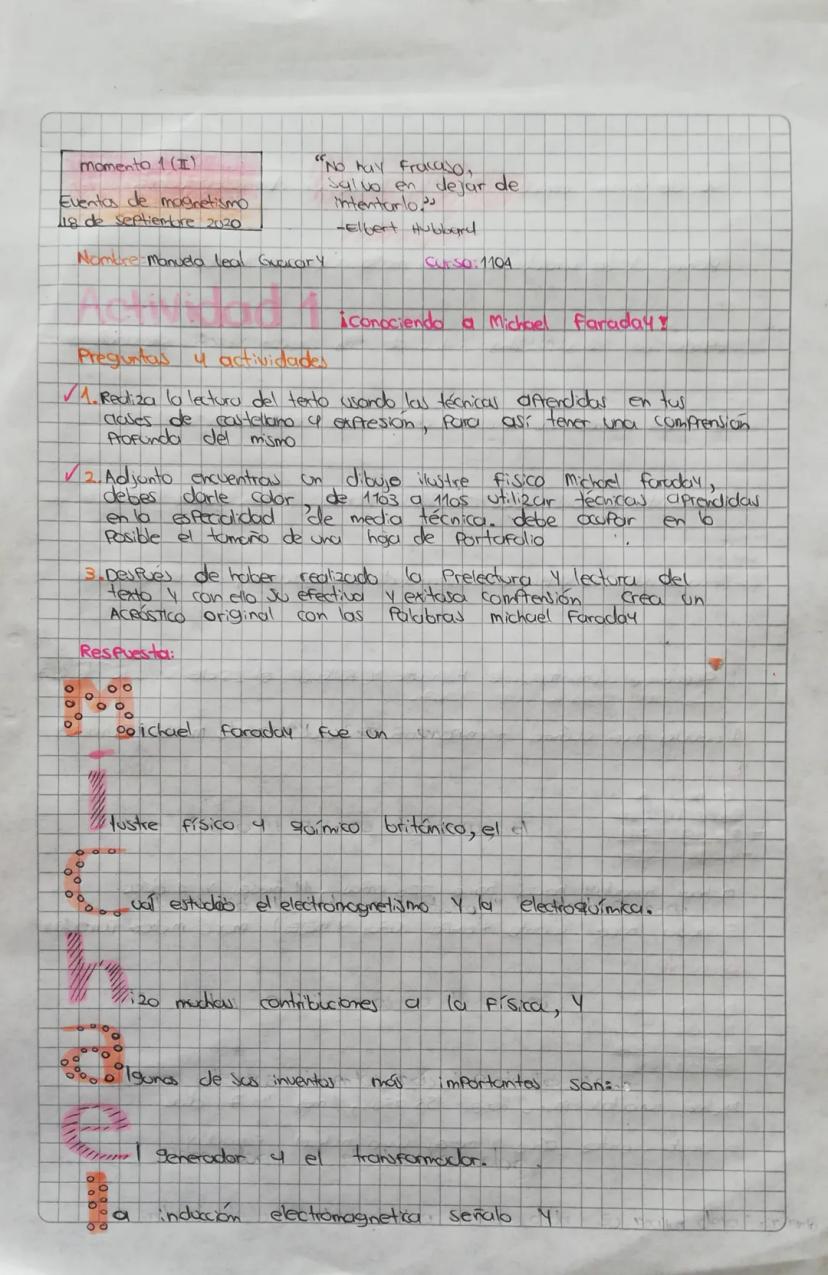 momento 1 (II)
Eventos de magnetismo
18 de septiembre 2020
"No hay fracaso,
salvo en dejar de
intentarlo."
-Elbert Hubbard
Nombre: Manuela Leal Guacary
Curso: 1104
Actividad 1 ¡conociendo a Michael Faraday!
Preguntas y actividades
✓ 1. Realiza la lectura del texto usando las técnicas aprendidas en tus
clases de castellano y expresión, para así tener una comprensión
profunda del mismo
✓ 2. Adjunto encuentras un dibujo ilustre físico Michael faraday,
debes darle color, de 1103 a 1105 utilizar técnicas aprendidas
en la especialidad de media técnica. debe ocupar en lo
posible el tamaño de una hoja de portafolio
3. Después de haber realizado la Prelectura y lectura del
texto y con ello su efectiva y exitosa comprensión crea un
ACRÓSTICO original con las Palabras michael Faraday
Respuesta:
Michael Faraday fue un
ilustre físico y químico británico, el
cual estudió el electromagnetismo y la electroquímica.
hizo muchas contribuciones a la física, y
algunos de sus inventos más importantes son:
el generador y el transformador.
la inducción electromagnetica señalo y